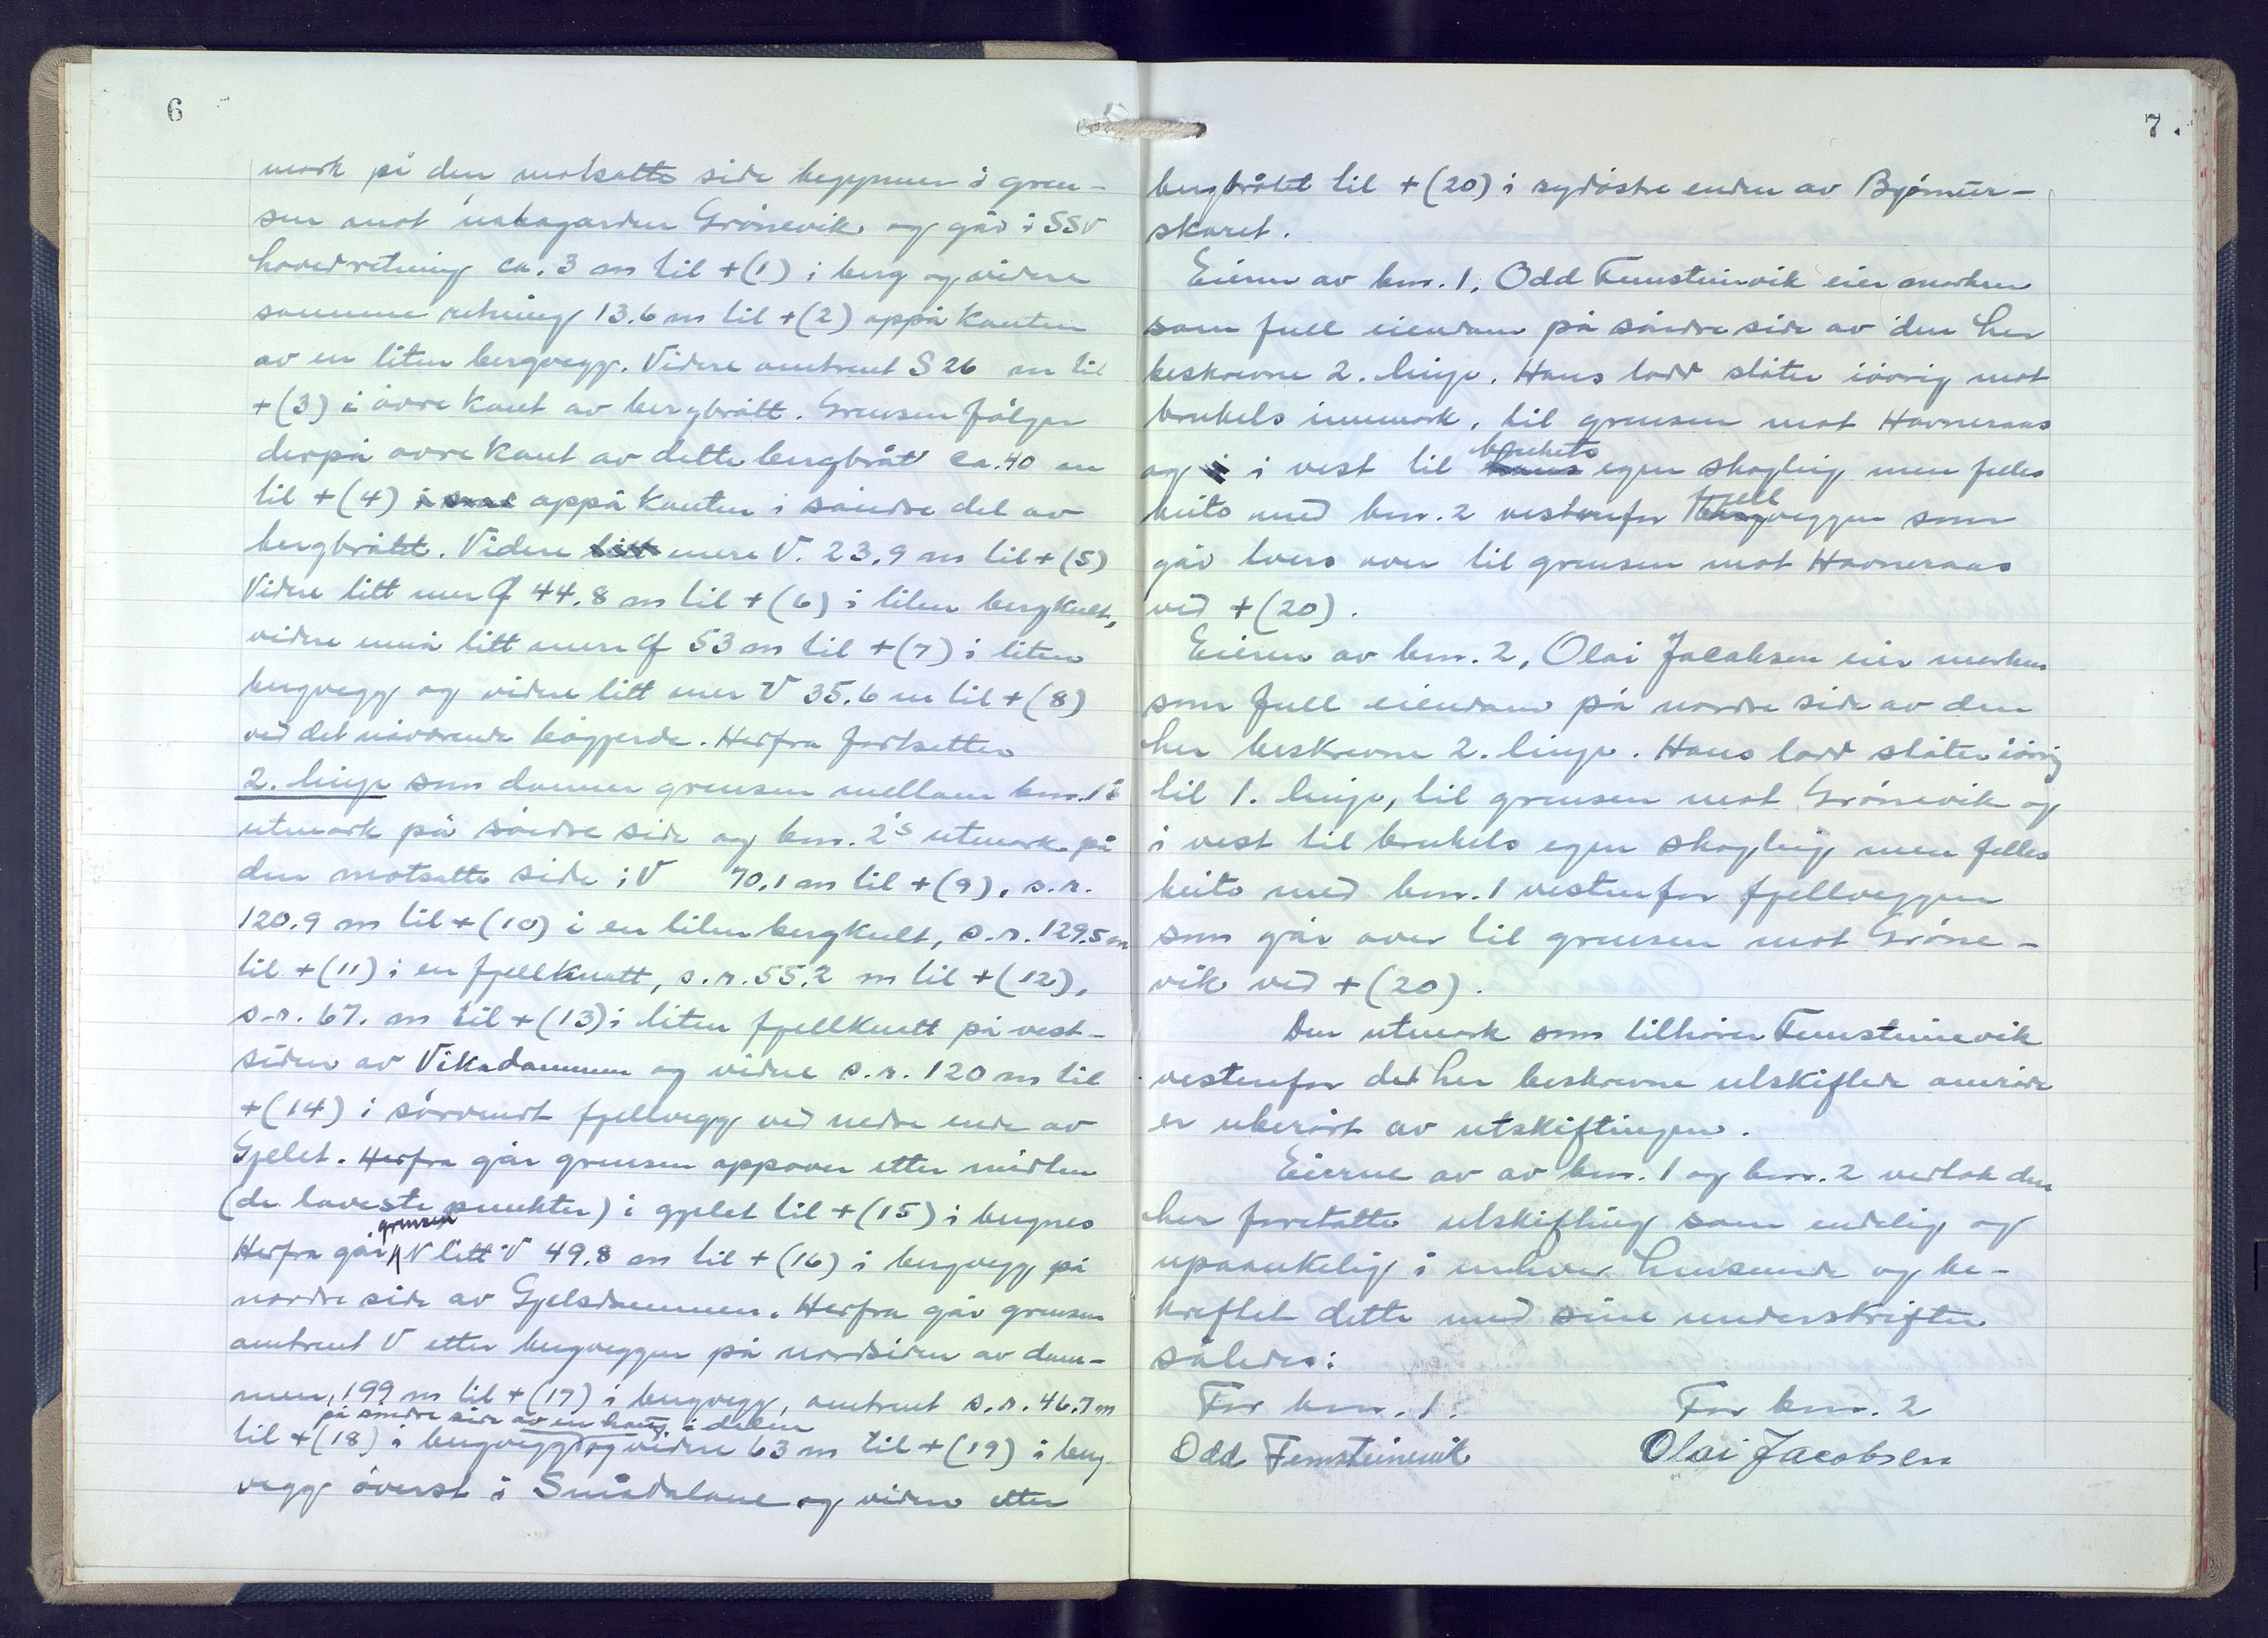 6
mark på den motsatte side begynner i gren-
sen mot nabogarden Grönevik og går i SSV
hovedretning ca. 3 m til +(1) i berg og videre
samme retning 13.6 m til +(2) oppå kanten
av en liten bergvegg. Videre omtrent S 26 m til
+(3) i övre kant av bergbrått. Grensen fölger
derpå övre kant av dette bergbråt ca. 40 m
til +(4) oppå kanten i söndre del av
bergbråtet. Videre mere V. 23.9 m til +(5)
Videre litt mer 44.8 m til +(6) i liten bergkult,
videre ennå litt mere 53 m til +(7) i liten
bergvegg og videre litt mer V 35.6 m til +(8)
ved det nåværende bögjerde. Herfra fortsetter
2. linje som danner grensen mellom bnr. 1's
utmark på söndre side og bnr. 2's utmark på
den motsatte side i V 70.1 m til +(9), s.r.
120.9 m til +(10) i en liten bergkult, s.r. 129.5 m
til +(11) i en fjellknatt, s.r. 55.2 m til +(12),
s.r. 67. m til +(13) i liten fjellknatt på vest-
siden av Vikadammen og videre s.r. 120 m til
+(14) i sörvendt fjellvegg ved nedre ende av
Gjelet. Herfra går grensen oppover etter midten
(de laveste punkter) i gjelet til +(15) i bergnes
Herfra går grensen N litt V 49.8 m til +(16) i bergvegg på
nordre side av Gjelsdammen. Herfra går grensen
omtrent V etter bergveggen på nordsiden av dam-
men, 199 m til +(17) i bergvegg, omtrent s.r. 46.7 m
til +(18) i bergvegg på söndre side av en haug i dalen og videre 63 m til +(19) i berg-
vegg överst i Smådalane og videre etter
7.
bergbråtet til +(20) i sydöstre enden av Björnur-
skaret.
Eieren av bnr. 1, Odd Femsteinevik eier marken
som full eiendom på söndre side av den her
beskrevne 2. linje. Hans lodd slåter iövrig mot
brukets innmark, til grensen mot Havneraas
og i vest til brukets egen skogteig men felles
beite med bnr. 2 vestenfor fjellveggen som
går tvers over til grensen mot Havneraas
ved +(20).
Eieren av bnr. 2, Olai Jacobsen eier marken
som full eiendom på nordre side av den
her beskrevne 2. linje. Hans lodd slåter iövrig
til 1. linje, til grensen mot Grönevik og
i vest til brukets egen skogteig men felles
beite med bnr. 1 vestenfor fjellveggen
som går over til grensen mot Gröne-
vik ved +(20).
Den utmark som tilhörer Femsteinevik
vestenfor det her beskrevne utskiftede område
er uberört av utskiftingen.
Eierne av av bnr. 1 og bnr. 2 vedtok den
her foretatte utskifting som endelig og
upaankelig i enhver henseende og be-
kreftet dette med sine underskrifter
således:
For bnr. 1. For bnr. 2
Odd Femsteinevik Olai Jacobsen